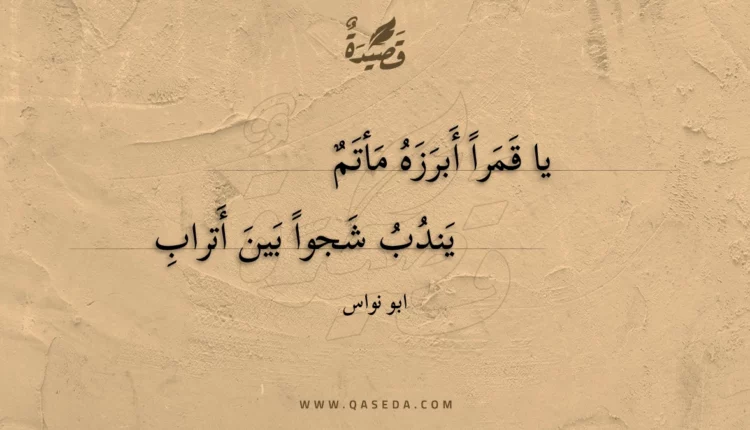 قَصِيدَةٌ
يا قَمَراً أَبرَزَهُ مَأتَمٌ
يَندُبُ شَجواً بَينَ أَترابِ
ابو نواس
WWW.QASEDA.COM